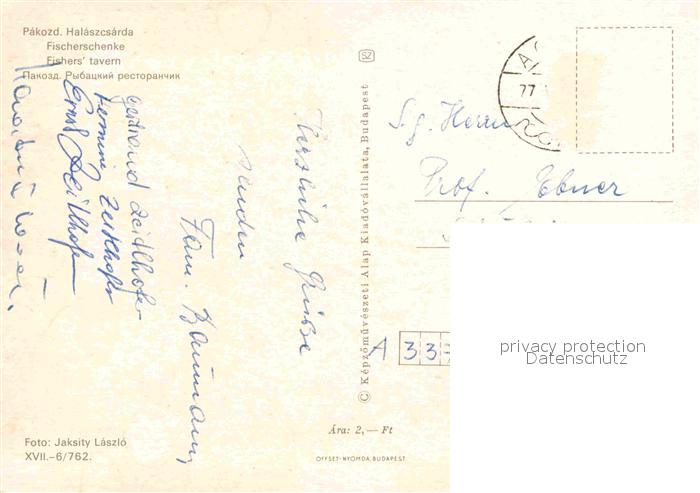 Pákozd. Halászcsárda
Fischerschenke
Fishers' tavern
Пакозд. Рыбацкий ресторанчик
Herzliche Grüsse
senden
Fam. Baumann,
Gertraud Zeitlhofer
Hermine Zeitlhofer
Ernst Zeitlhofer
Foto: Jaksity László
XVII.–6/762.
SZ
© Képzőművészeti Alap Kiadóvállalata, Budapest
77
S.g. Herrn
Prof. Ebner
A 33
Ára: 2,— Ft
OFFSET-NYOMDA, BUDAPEST
privacy protection
Datenschutz